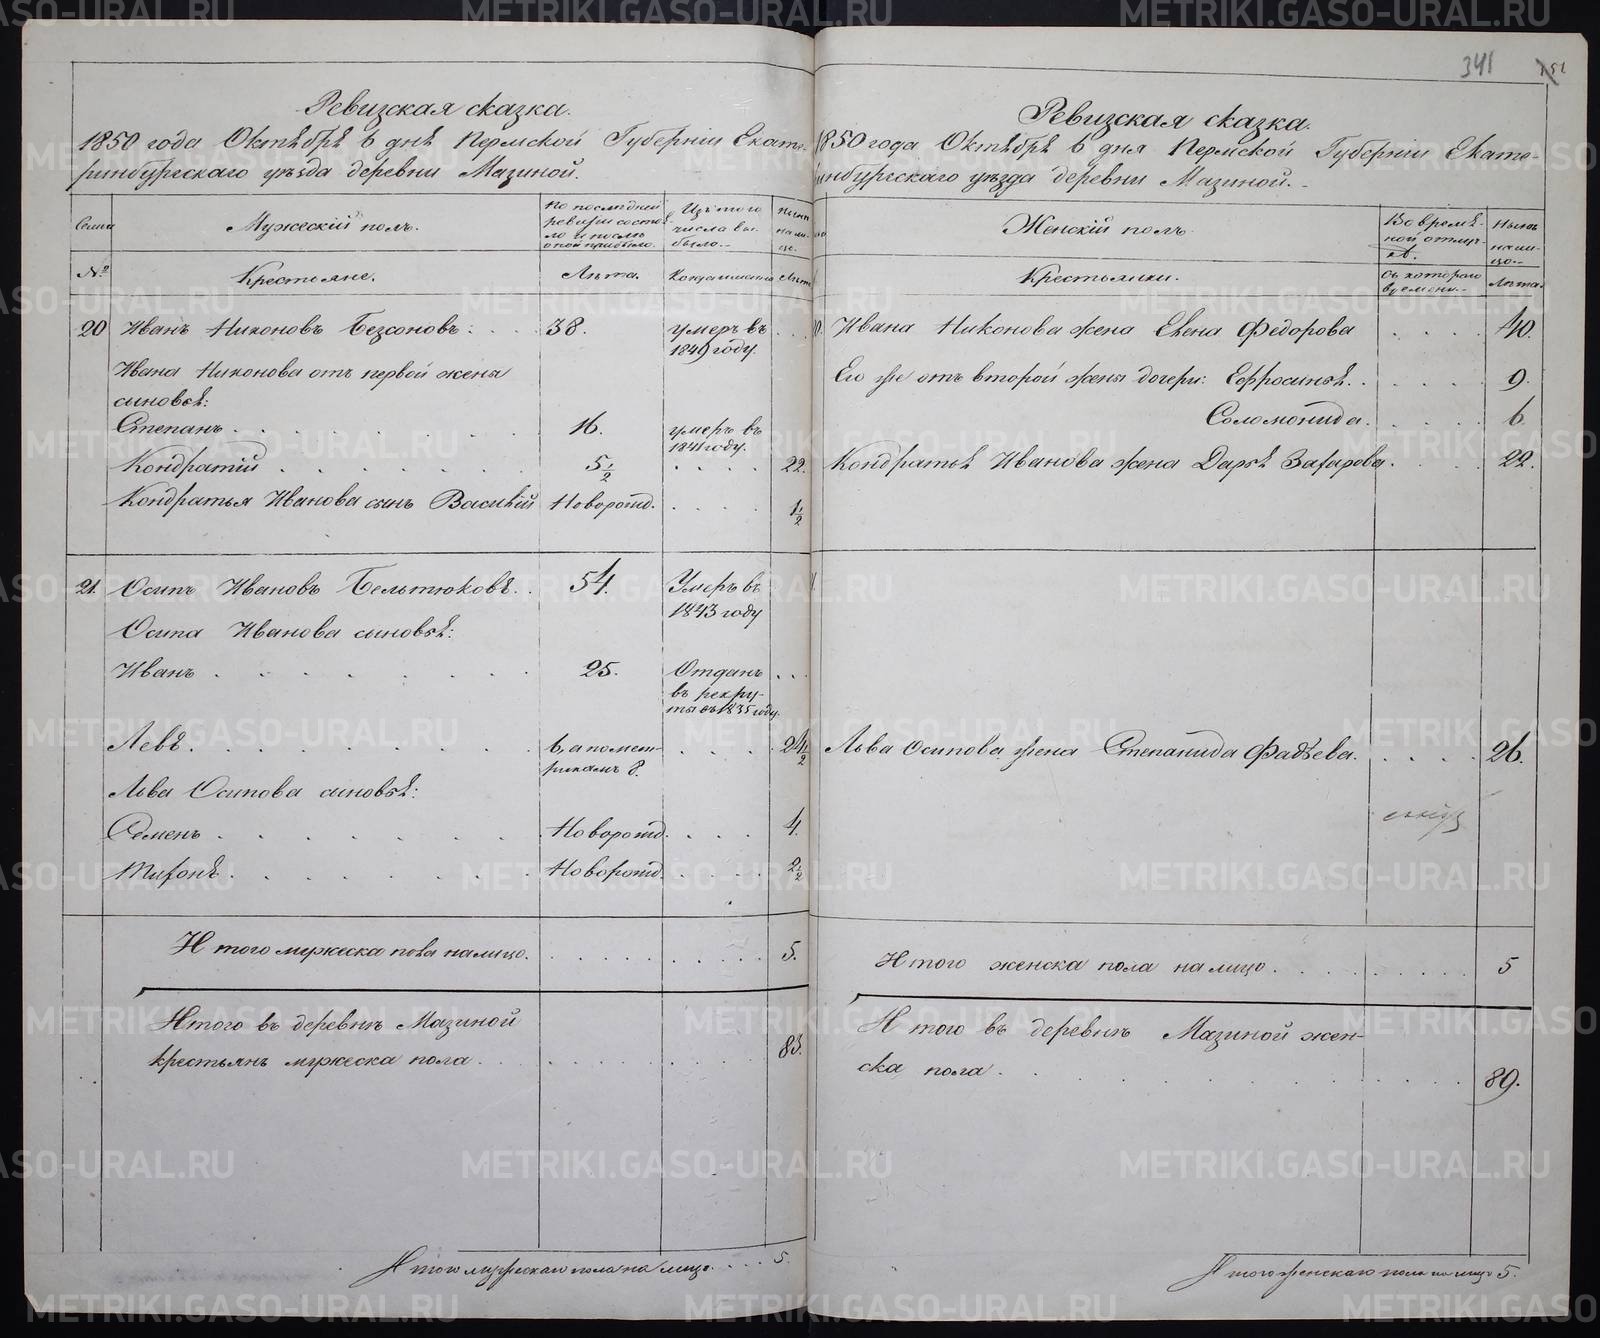 Ревизская сказка.
1850 года Октября 6 дня Пермской Губерніи Екате-
ринбургскаго уѣзда деревни Мазиной.
Мужескій полъ.
По послѣдней ревизіи состояло и послѣ оной прибыло.
Изъ того числа выбыло.
Нынѣ на лицо.
№
Крестьяне.
Лѣта.
Когда именно
Лѣта
20 Иванъ Никоновъ Безсоновъ 38. умеръ въ
1849 году.
Ивана Никонова отъ первой жены
сыновья:
Степанъ 16. умеръ въ
1841 году.
Кондратій 5 1/2 22.
Кондратья Иванова сынъ Василій Новорожд. 1 1/2
21. Осипъ Ивановъ Бельтюковъ 54. Умеръ въ
1843 году
Осипа Иванова сыновья:
Иванъ 25. Отданъ
въ рекру-
ты въ 1835 году.
Левъ 6, а по мет-
рикамъ 8. 24 1/2
Льва Осипова сыновья:
Семенъ Новорожд. 4.
Тихонъ Новорожд. 2 1/2
Итого мужеска пола на лицо. 5.
Итого въ деревнѣ Мазиной
крестьянъ мужеска пола 83.
Итого мужескаго пола на лицо 5.
341
Ревизская сказка.
1850 года Октября 6 дня Пермской Губерніи Екате-
инбургскаго уѣзда деревни Мазиной.
Женскій полъ.
Во времен-
ной отлуч-
кѣ.
Нынѣ
на ли-
цо.
Крестьянки.
Съ котораго
времени.
Лѣта.
Ивана Никонова жена Елена Федорова 40.
Его же отъ второй жены дочери: Ефросинья 9.
Соломонида 6
Кондратья Иванова жена Дарья Захарова 22.
Льва Осипова жена Степанида Фадѣева. 26.
Итого женска пола на лицо 5
Итого въ деревнѣ Мазиной жен-
ска пола 89.
Итого женскаго пола на лицо 5.
METRIKI.GASO-URAL.RU